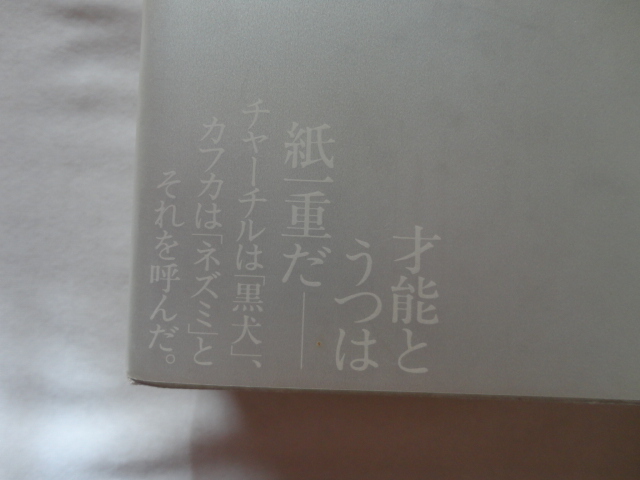 才能と
うつは
紙一重だ――
チャーチルは「黒犬」、
カフカは「ネズミ」と
それを呼んだ。